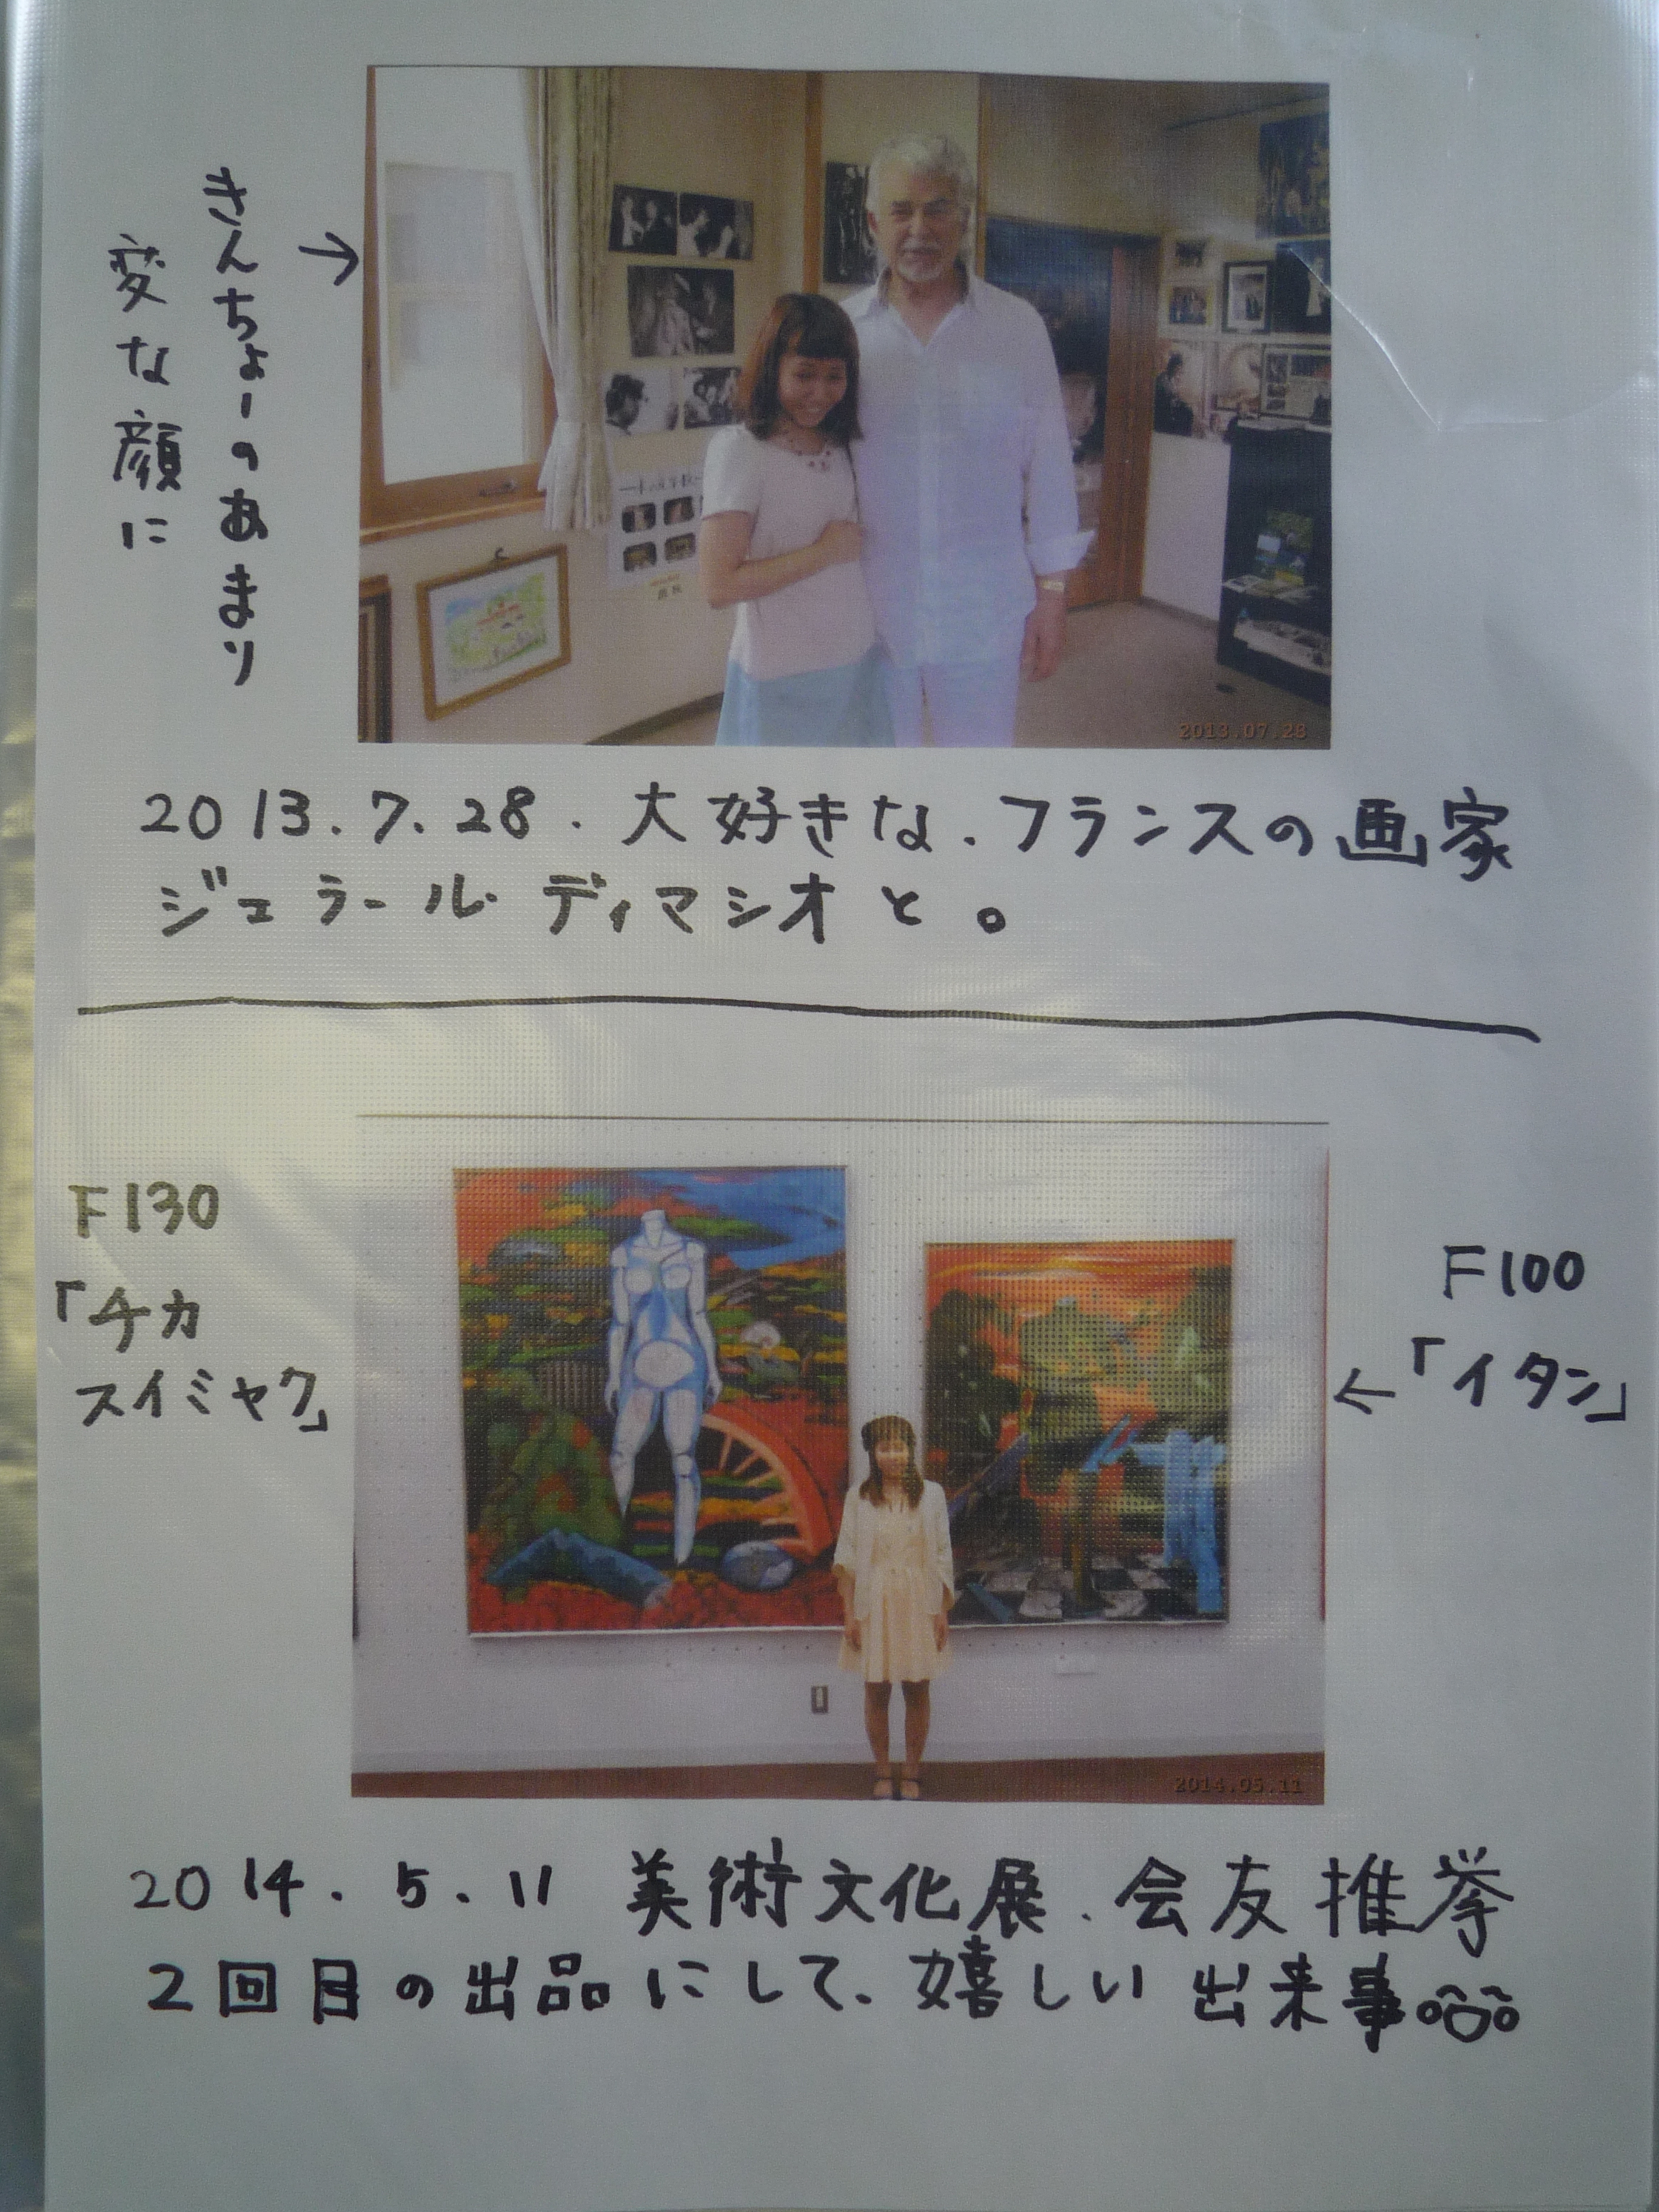 きんちょーのあまり
変な顔に
→
2013.07.28
2013.7.28.大好きな.フランスの画家
ジェラール ディマシオと。
F130
「チカ
スイミャク」
F100
←「イタン」
2014.05.11
2014.5.11 美術文化展.会友推挙
2回目の出品にして、嬉しい出来事